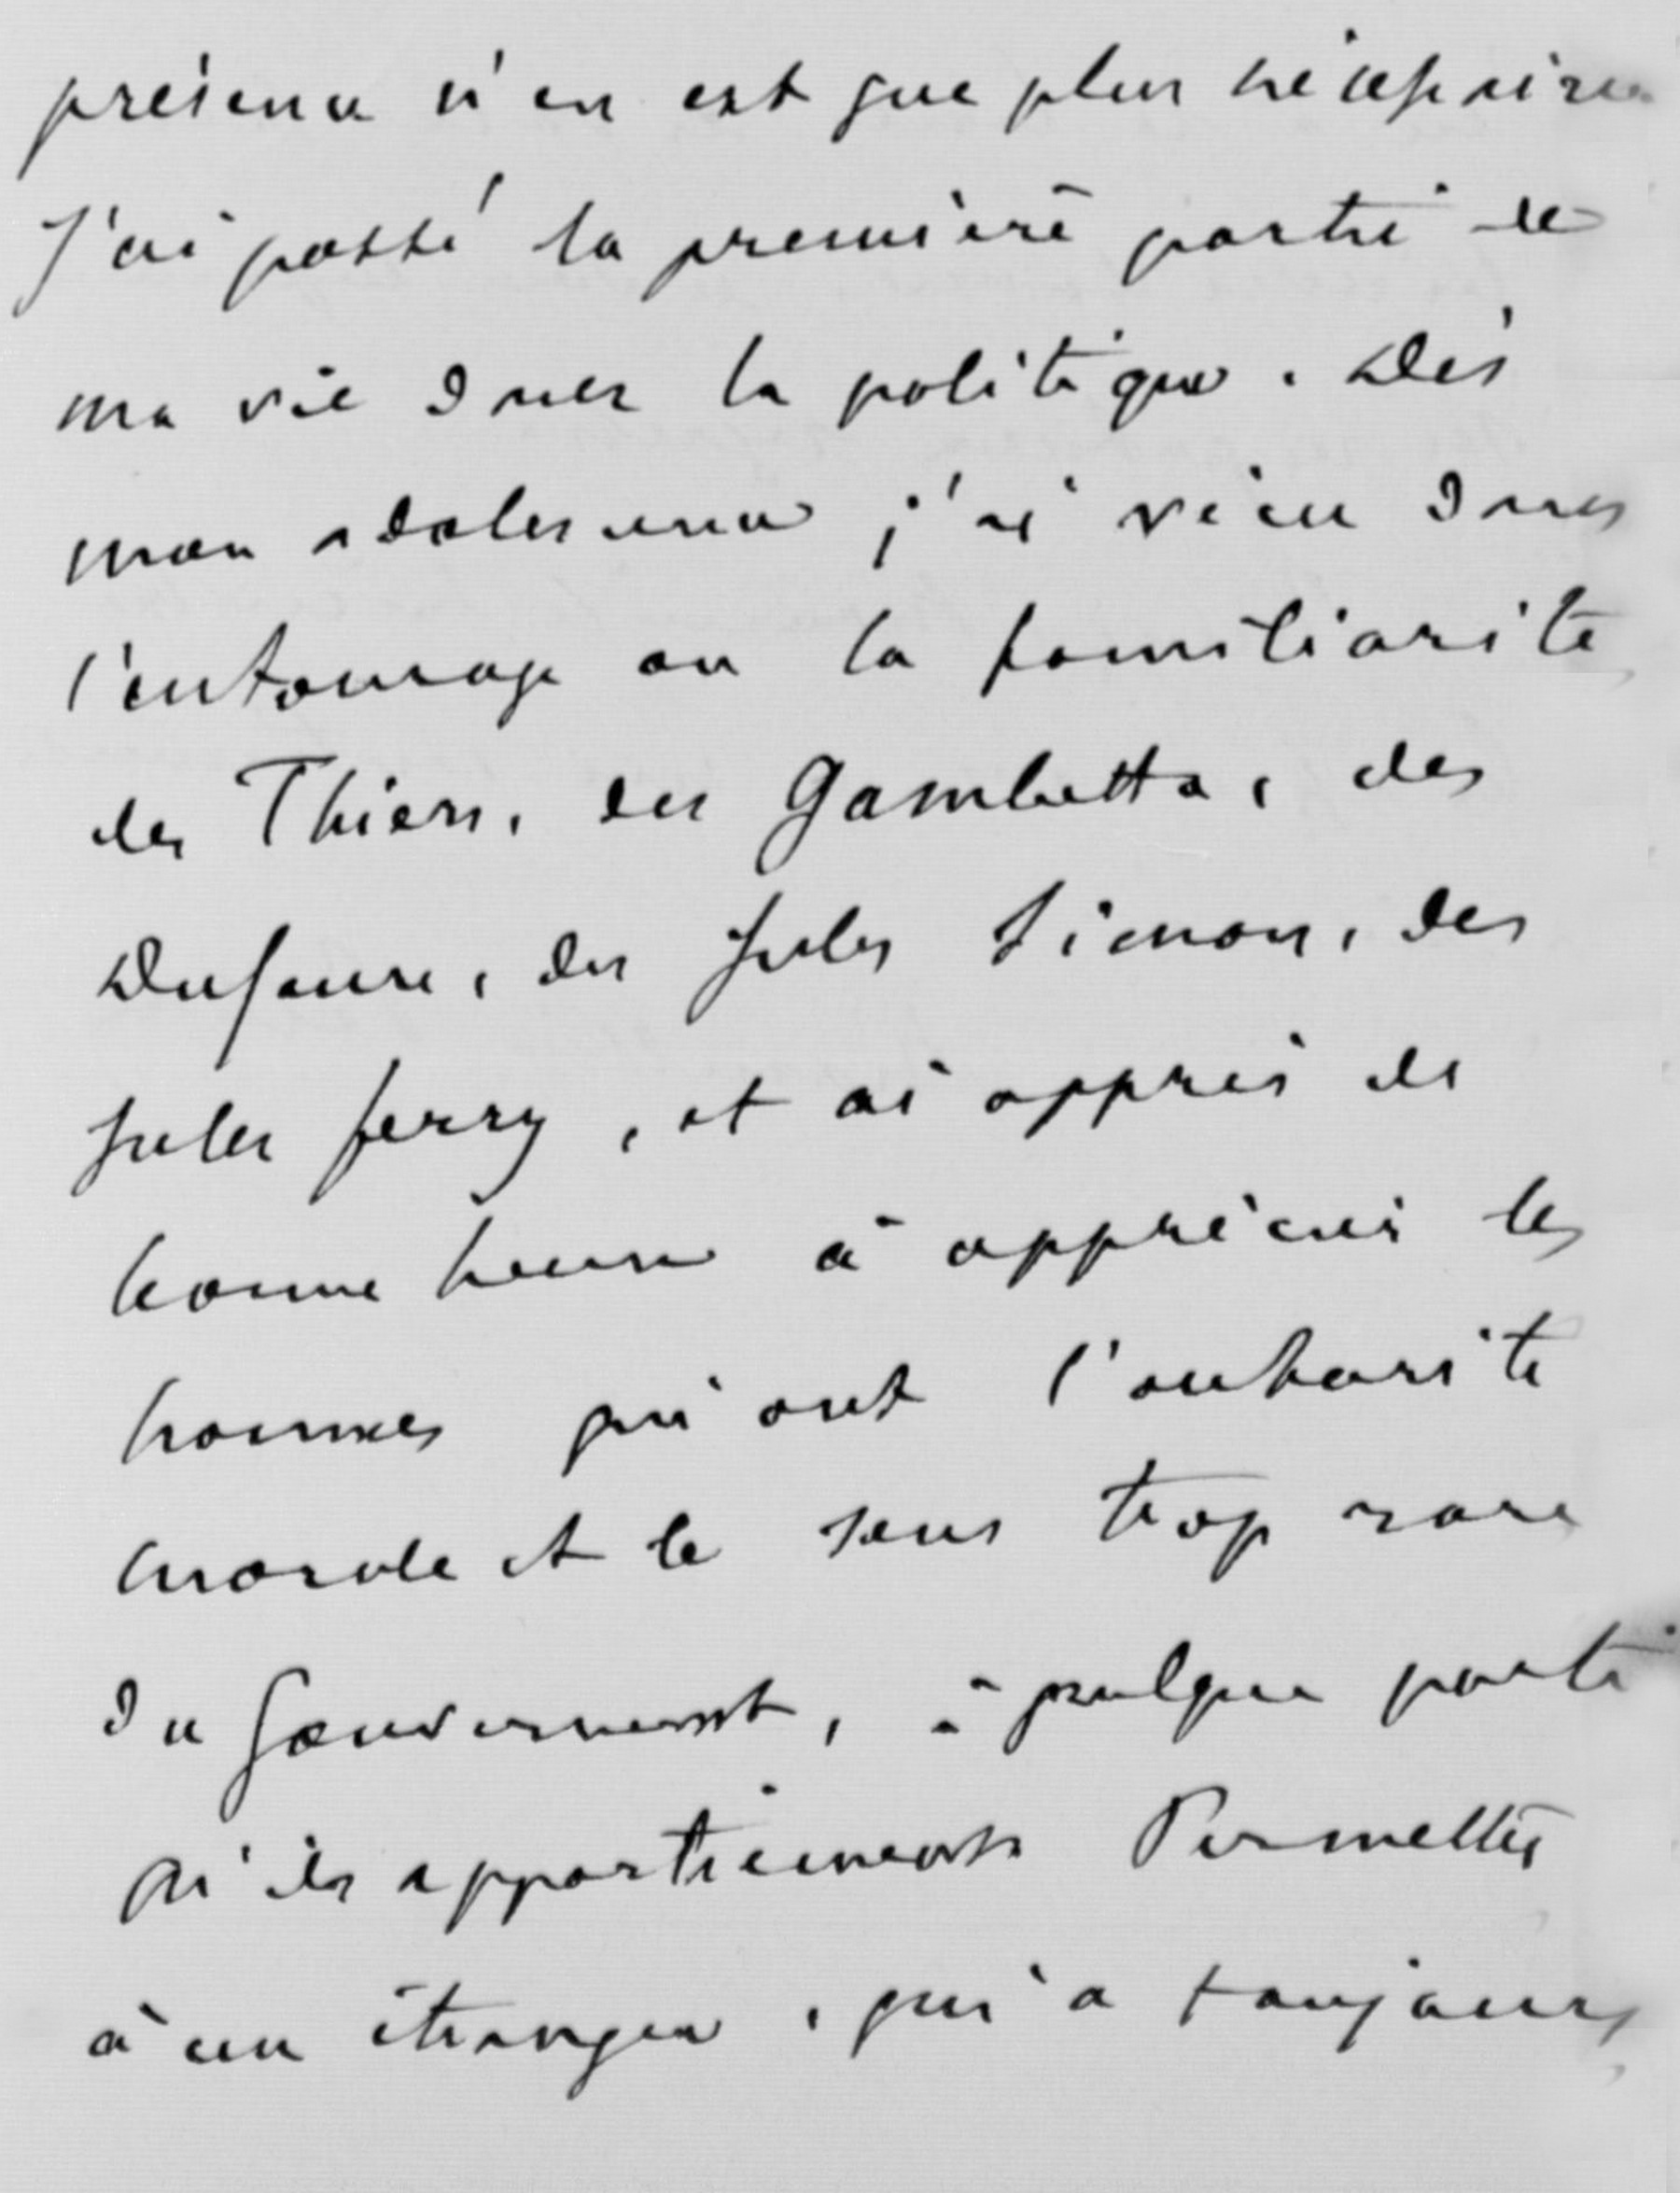 présence n'en est que plus nécessaire
J'ai passé la première partie de
ma vie dans la politique. Dès
mon adolescence j'ai vécu dans
l'entourage ou la familiarité
des Thiers, des Gambetta, des
Dufaure, des Jules Simon, des
Jules Ferry, et ai appris de
bonne heure à apprécier les
hommes qui ont l'autorité
morale et le sens trop rare
du Gouvernement, à quelque parti
qu'ils appartiennent. Permettez
à un étranger, qui a toujours